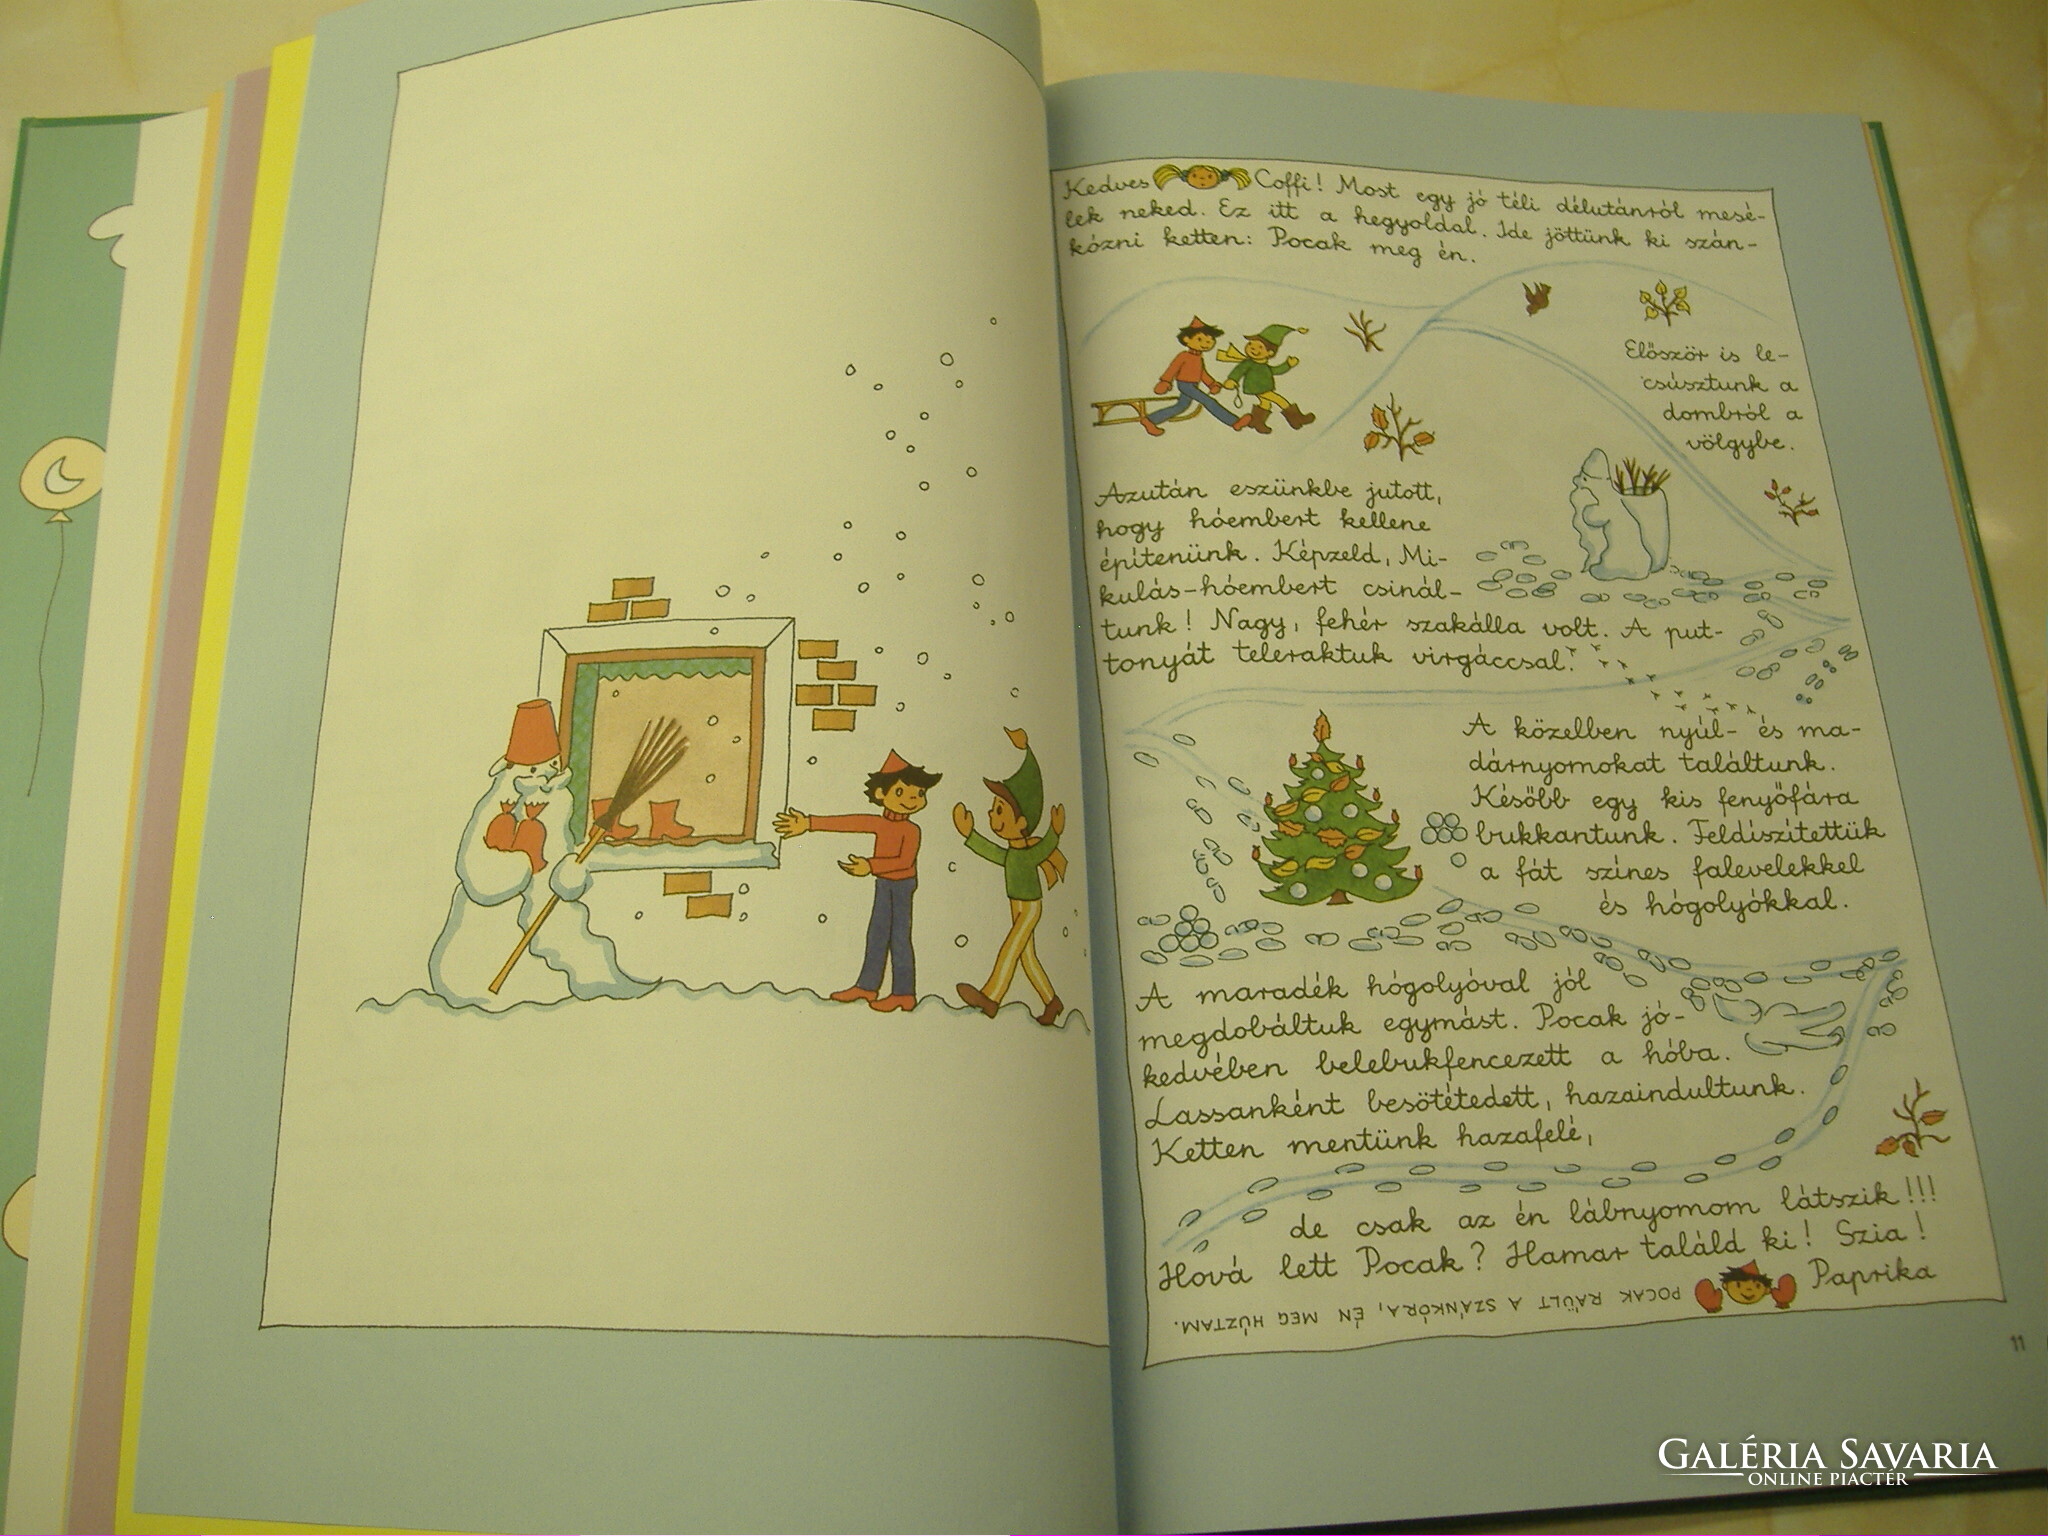 Kedves Coffi! Most egy jó téli délutánról mesé-
lek neked. Ez itt a hegyoldal. Ide jöttünk ki szán-
kózni ketten: Pocak meg én.
Először is le-
csúsztunk a
dombról a
völgybe.
Azután eszünkbe jutott,
hogy hóembert kellene
építenünk. Képzeld, Mi-
kulás-hóembert csinál-
tunk! Nagy, fehér szakálla volt. A put-
tonyát teleraktuk virgáccsal.
A közelben nyúl- és ma-
dárnyomokat találtunk.
Később egy kis fenyőfára
bukkantunk. Feldíszítettük
a fát színes falevelekkel
és hógolyókkal.
A maradék hógolyóval jól
megdobáltuk egymást. Pocak jó-
kedvében belebukfencezett a hóba.
Lassanként besötétedett, hazaindultunk.
Ketten mentünk hazafelé,
de csak az én lábnyomom látszik!!!
Hová lett Pocak? Hamar találd ki! Szia!
Paprika
POCAK RÁÜLT A SZÁNKÓRA, ÉN MEG HÚZTAM.
11
GALÉRIA SAVARIA
ONLINE PIACTÉR